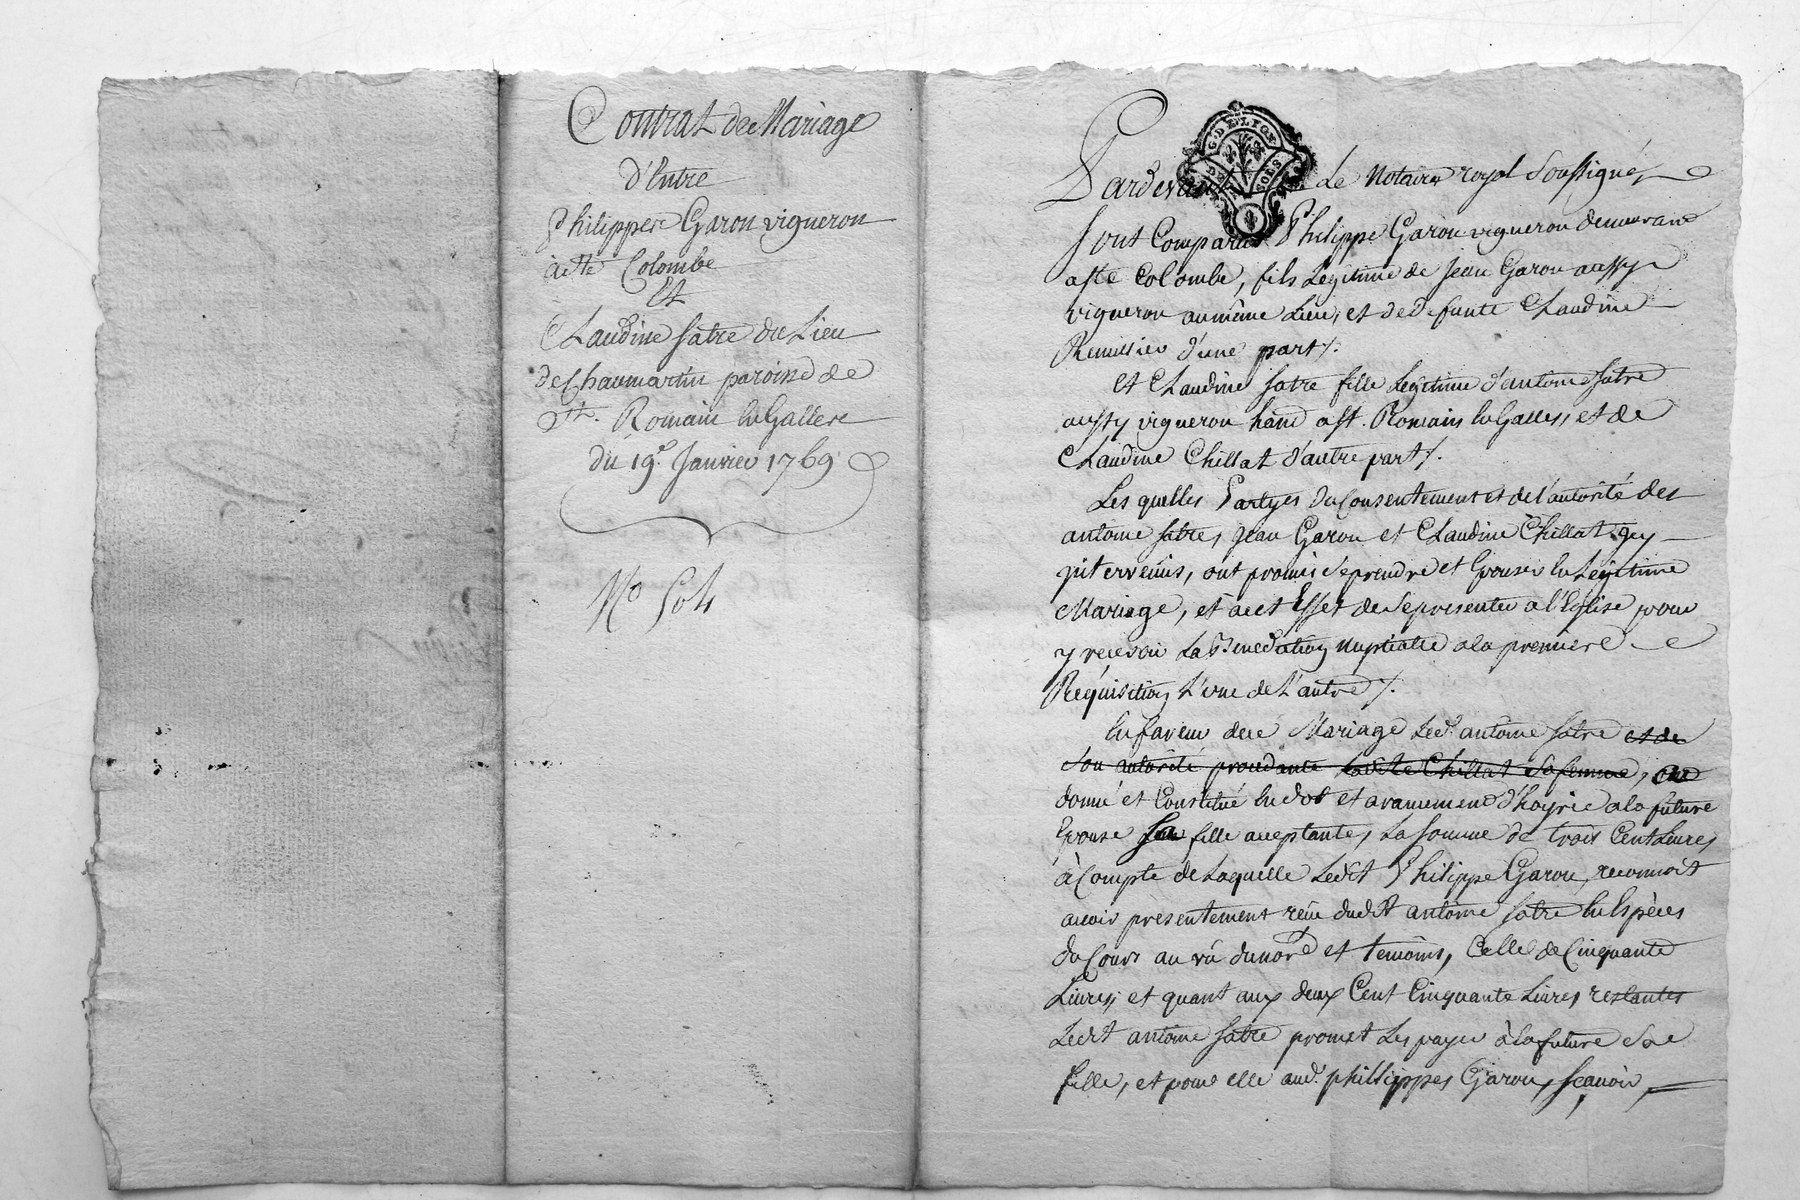 Contrat de Mariage
d'Entre
Philippe Garon vigneron
à Ste Colombe
Et
Claudine Satre du Lieu
de Chaumartin paroisse de
St. Romain en Gallere
du 19e. Janvier 1769
G. DE LYON
SOLS
Pardevant Le Notaire royal Soussigné,
Sont Comparus Philippe Garon vigneron demeurant
a Ste Colombe, fils Legitime de Jean Garon aussy
vigneron au même Lieu, et de Defunte Claudine
d'une part /.
Et Claudine Satre fille Legitime d'antoine Satre
aussy vigneron hand a St. Romain en Galles, et de
Claudine Chillat d'autre part /.
Les quelles Partyes du Consentement et de l'autorité des
antoine Satre, Jean Garon et Claudine Chillat icy
intervenus, ont promis se prendre et Epouser en Legitime
Mariage, et a cet Effet de se presenter a l'Eglise pour
y recevoir La Benediction Nuptialle a la premiere
Requisition L'une de L'autre /.
En faveur de ce Mariage Led. antoine Satre et de
Son autorité procedante ladite Chillat sa femme, ont
donné et Constitué en dot et avancement d'hoyrie a la future
Epouse sa fille acceptante, La Somme de trois Cent Livres,
à Compte de Laquelle Ledit Philippe Garon, reconnoit
avoir presentement reçu dudit antoine Satre en Espèces
du Cours au vû du nore et temoins, Celle de Cinquante
Livres, et quant aux deux Cent Cinquante Livres restantes
Ledit antoine Satre promet Les payer à la future Sa
fille, et pour elle aud. phillippes Garon, Scavoir,